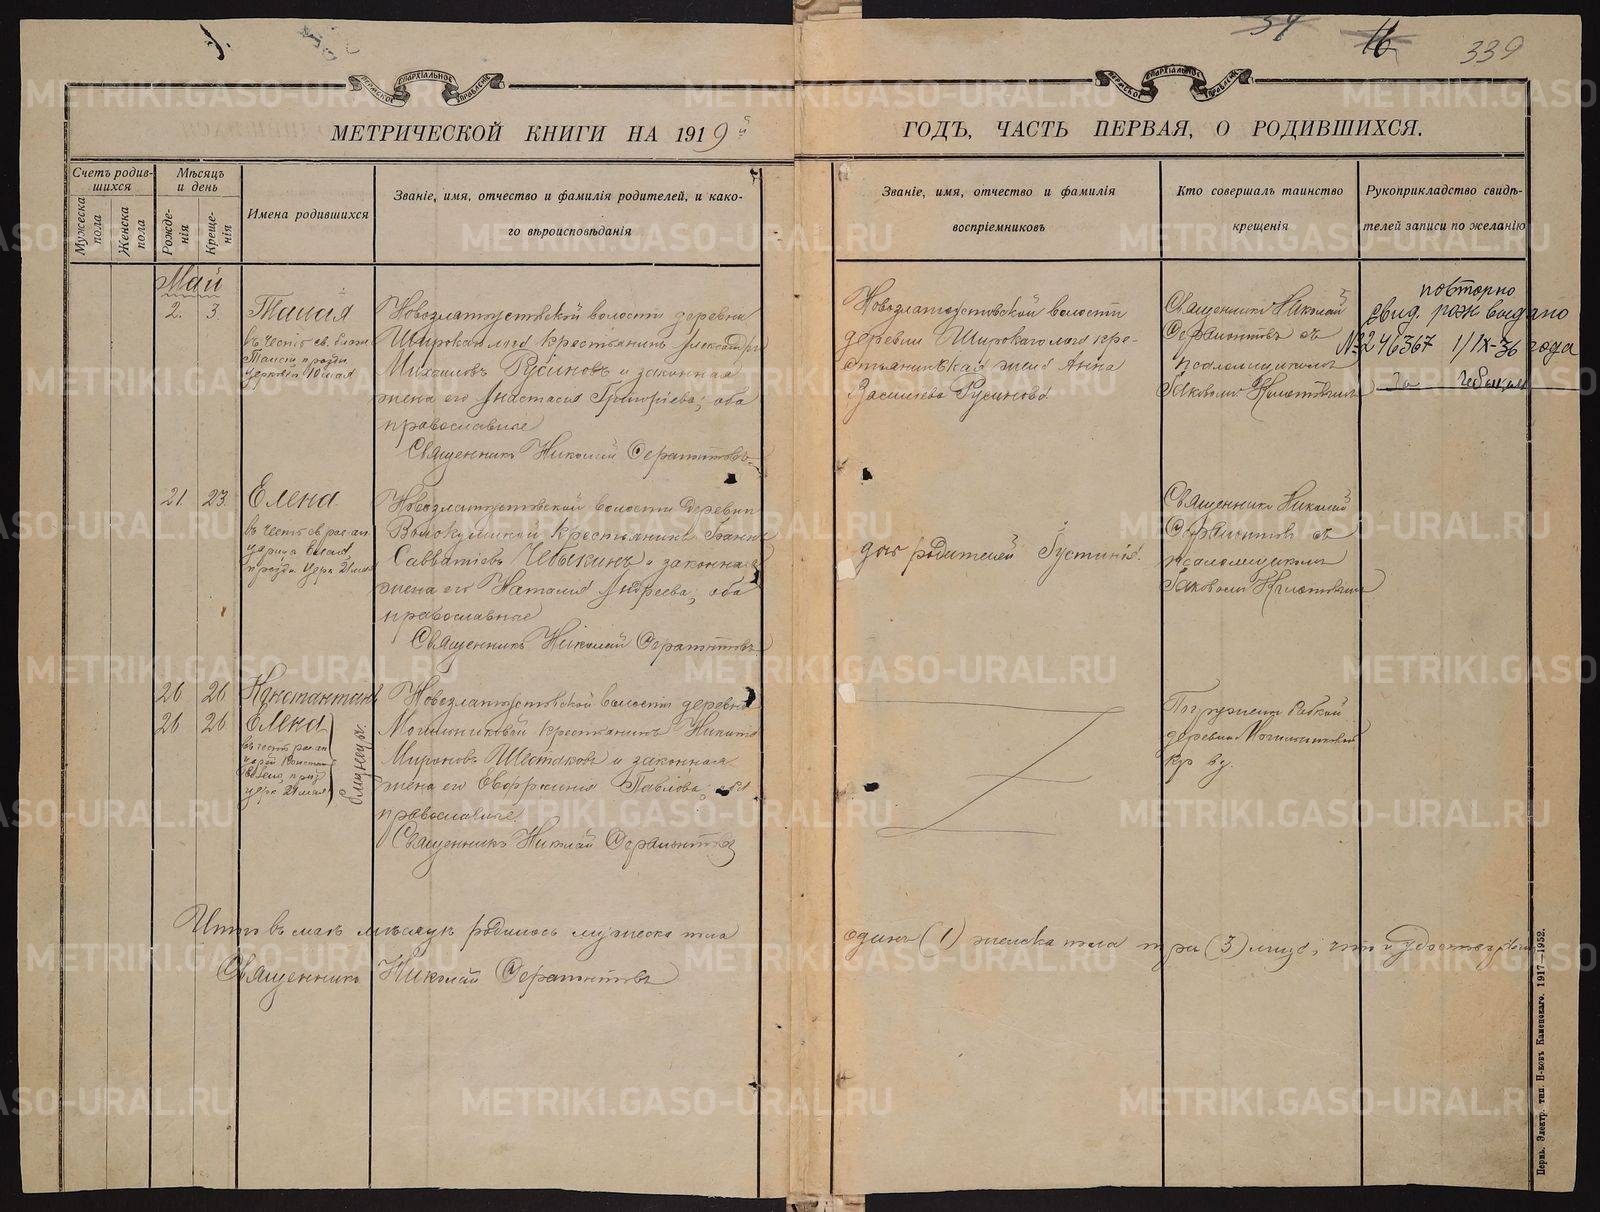 34 16 339
ПЕРМСКОЕ ЕПАРХІАЛЬНОЕ УПРАВЛЕНІЕ
ПЕРМСКОЕ ЕПАРХІАЛЬНОЕ УПРАВЛЕНІЕ
МЕТРИЧЕСКОЙ КНИГИ НА 1919 й
ГОДЪ, ЧАСТЬ ПЕРВАЯ, О РОДИВШИХСЯ.
Счетъ родив-
шихся
Мужеска
пола
Женска
пола
Мѣсяцъ
и день
Рожде-
нія
Креще-
нія
Имена родившихся
Званіе, имя, отчество и фамилія родителей, и како-
го вѣроисповѣданія
Званіе, имя, отчество и фамилія
воспріемниковъ
Кто совершалъ таинство
крещенія
Рукоприкладство свидѣ-
телей записи по желанію
Май
2. 3.
Таисія
въ честь св. блаж
Таисіи празд.
церковію 10 мая
Новозлатоустовской волости деревни
Широкаго лога крестьянинъ Александръ
Михаиловъ Русиновъ и законная
жена его Анастасія Григорьева, оба
православные
Священникъ Николай Серапіонтовъ
Новозлатоустовской волости
деревни Широкаго лога кре-
стьянинская жена Анна
Васильева Русинова
Священникъ Николай
съ
псаломщикомъ
Іаковомъ
повторно
свид. рож выдано
№ 246367 1/IX-36 года
21. 23.
Елена
въ честь св равноап
царицы Елены,
празд. церк 21 мая
Новозлатоустовской волости деревни
крестьянинъ Іоаннъ
Савватіевъ Чебыкинъ и законная
жена его Наталія Андреева, оба
православные
Священникъ Николай Серапіонтовъ
дочь родителей Іустинія
Священникъ Николай
съ
псаломщикомъ
Іаковомъ
26 26 Константинъ
26 26 Елена
близнецы
въ честь равноап
церк 21 мая
Новозлатоустовской волости деревни
Могильниковой крестьянинъ Никита
Мироновъ Шестаковъ и законная
жена его Евфросинія Павлова, оба
православные
Священникъ Николай Серапіонтовъ
Погружены бабкой
деревни Могильниковой
Итого въ маѣ мѣсяцѣ родилось мужеска пола
одинъ (1) женска пола три (3) лица, что и удостовѣряетъ
Священникъ Николай Серапіонтовъ
Пермь. Электр. тип. Н-ковъ Каменскаго. 1917—1952.
METRIKI.GASO-URAL.RU